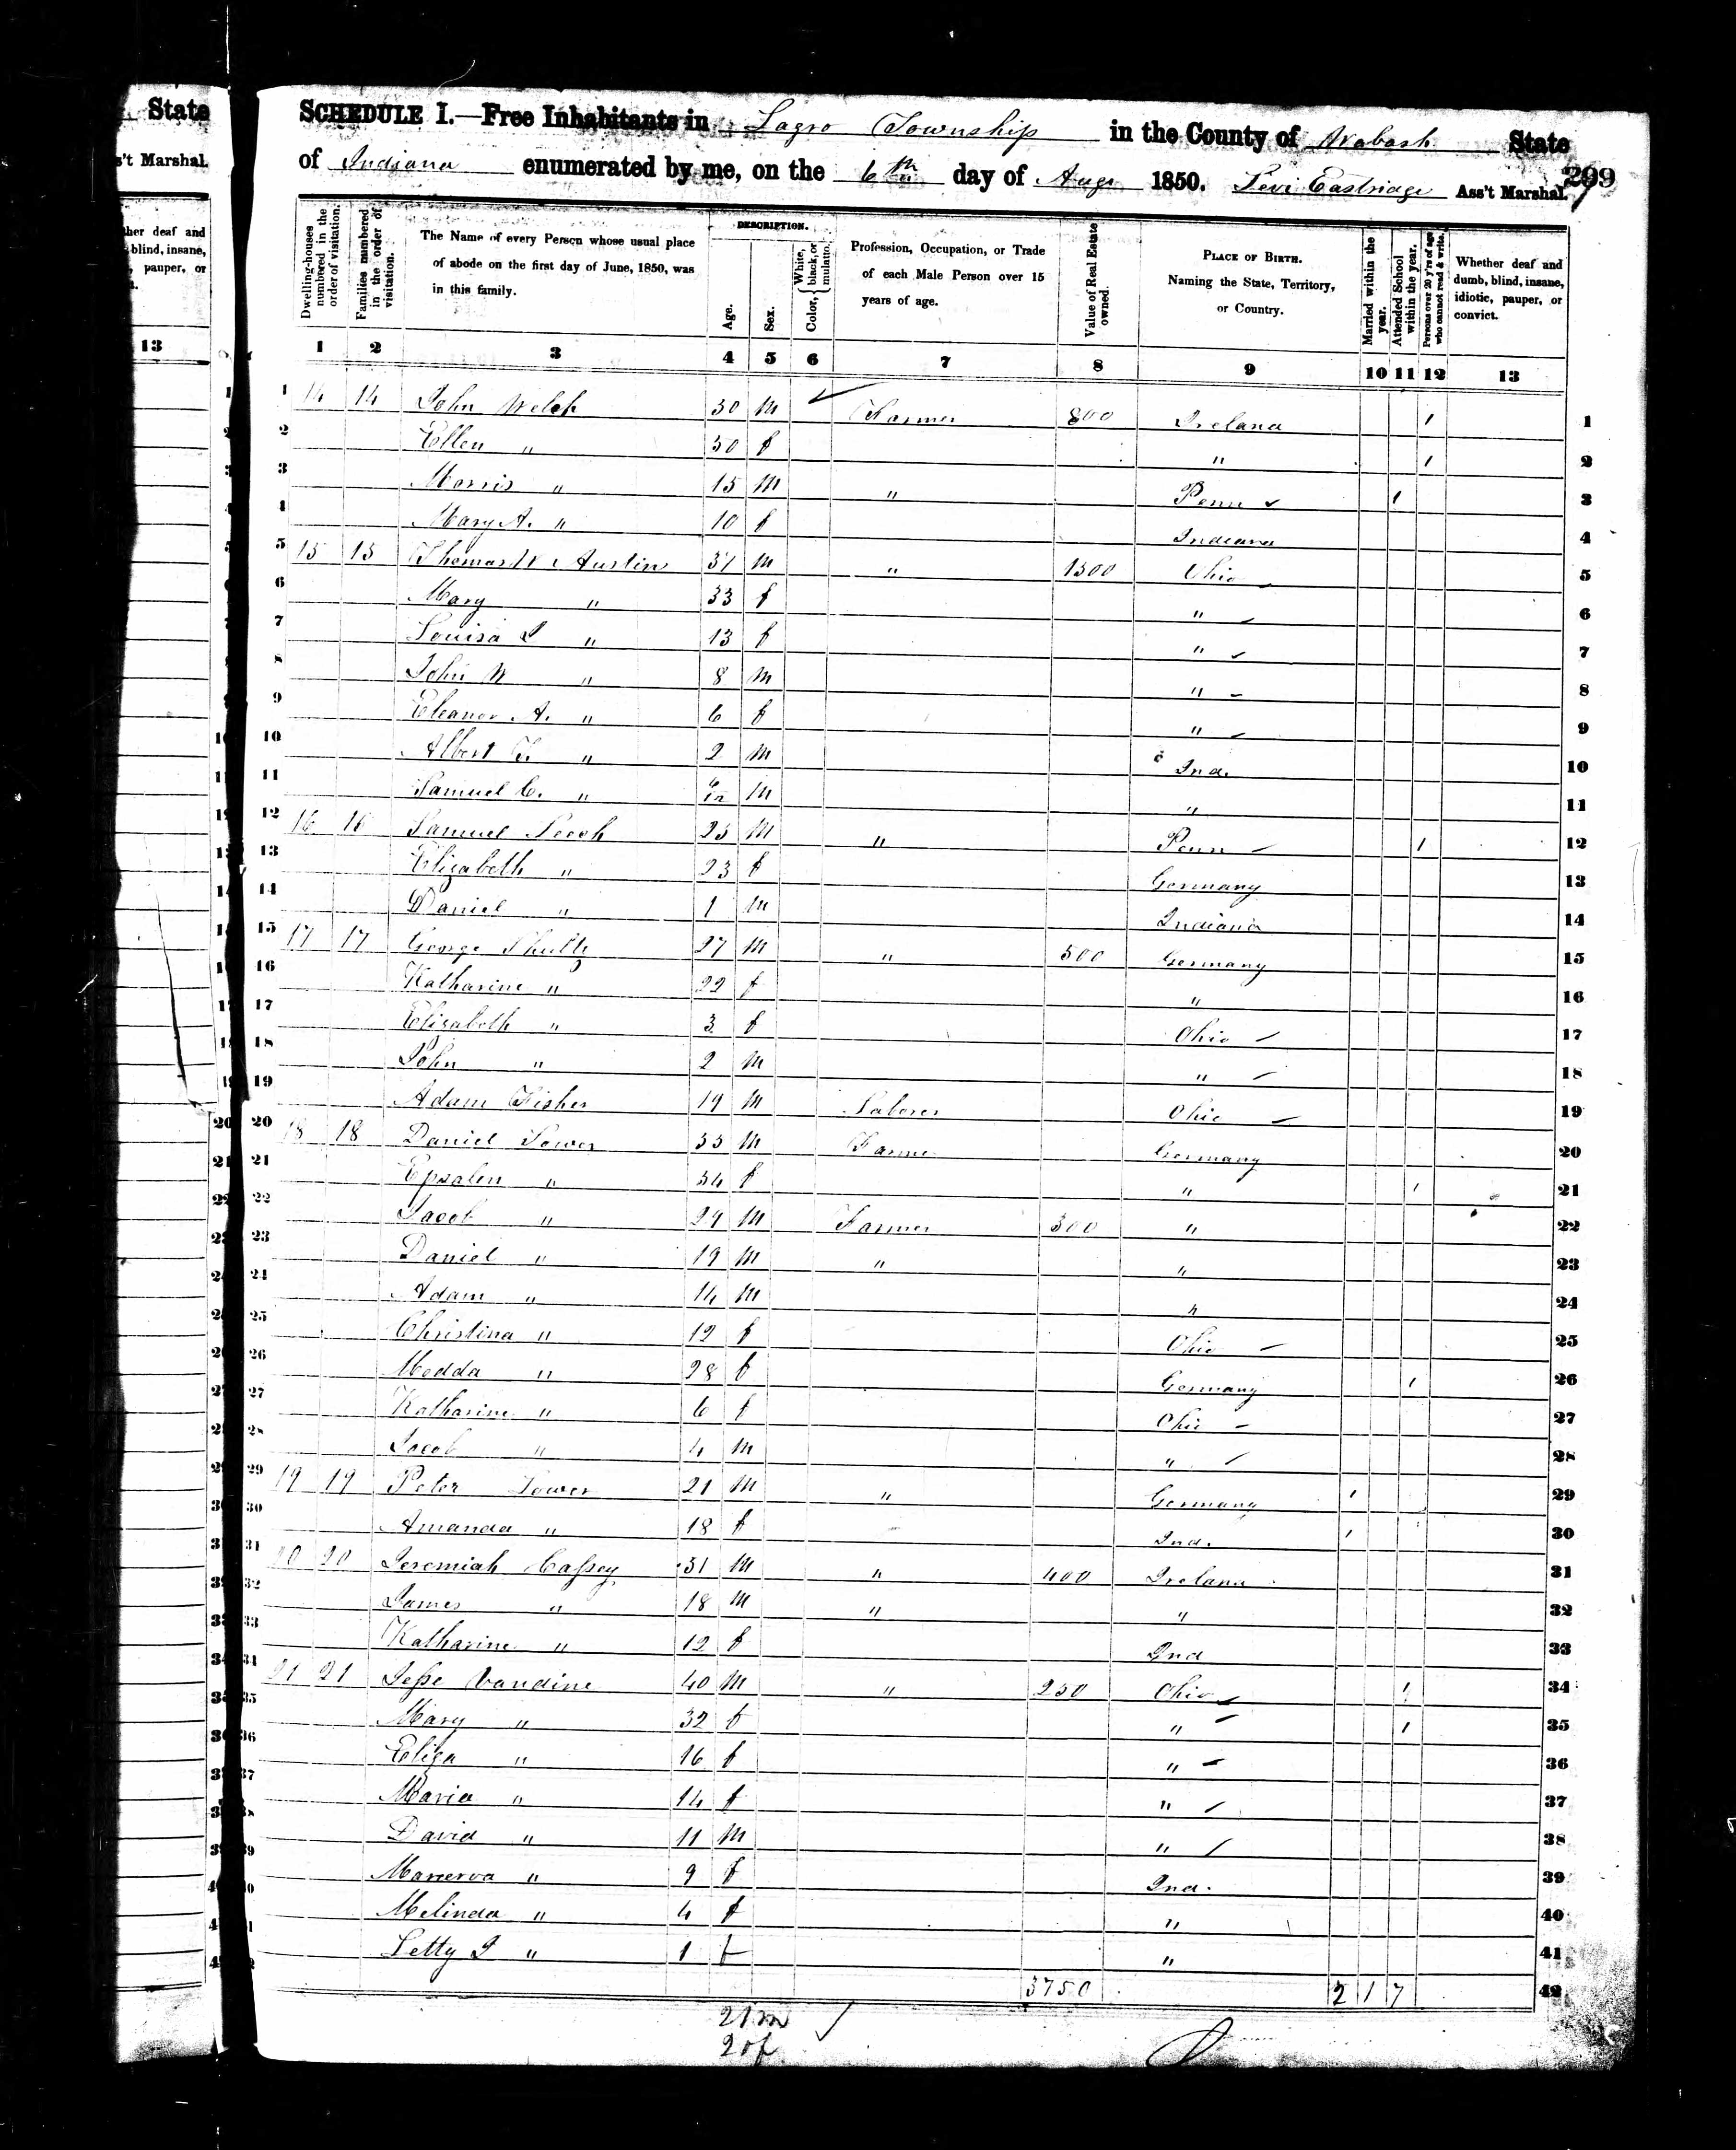 State
s't Marshal.
her deaf and
blind, insane,
pauper, or
13
SCHEDULE I.—Free Inhabitants in Lagro Township in the County of Wabash State
of Indiana enumerated by me, on the 6th day of Augt 1850. Levi Eastridge Ass't Marshal. 209
Dwelling-houses numbered in the order of visitation.
Families numbered in the order of visitation.
The Name of every Person whose usual place of abode on the first day of June, 1850, was in this family.
DESCRIPTION.
Age.
Sex.
Color, { White, black, or mulatto.
Profession, Occupation, or Trade of each Male Person over 15 years of age.
Value of Real Estate owned.
PLACE OF BIRTH. Naming the State, Territory, or Country.
Married within the year.
Attended School within the year.
Persons over 20 y'rs of age who cannot read & write.
Whether deaf and dumb, blind, insane, idiotic, pauper, or convict.
1 2 3 4 5 6 7 8 9 10 11 12 13
1 14 14 John Welch 30 m Farmer 800 Ireland 1 1
2 Ellen " 30 f " 1 2
3 Morris " 15 m " Penn 1 3
4 Mary A. " 10 f Indiana 4
5 15 15 Thomas W Austin 37 m " 1300 Ohio 5
6 Mary " 33 f " 6
7 Louisa J " 13 f " 7
8 John W " 8 m " 8
9 Eleanor A. " 6 f " 9
10 Albert " 2 m Ind. 10
11 Samuel C. " 6/12 m " 11
12 16 16 Samuel 25 m " Penn 1 12
13 Elizabeth " 23 f Germany 13
14 Daniel " 1 m Indiana 14
15 17 17 George Shultz 27 m " 500 Germany 15
16 Katharine " 22 f " 16
17 Elizabeth " 3 f Ohio 17
18 John " 2 m " 18
19 Adam Fisher 19 m Laborer Ohio 19
20 18 18 Daniel Sower 55 m Farmer Germany 20
21 Epsalen " 54 f " 1 21
22 Jacob " 29 m Farmer 300 " 22
23 Daniel " 19 m " " 23
24 Adam " 14 m " 24
25 Christina " 12 f Ohio 25
26 Medda " 28 f Germany 1 26
27 Katharine " 6 f Ohio 27
28 Jacob " 4 m " 28
29 19 19 Peter Sower 21 m " Germany 1 29
30 Amanda " 18 f Ind. 1 30
31 20 20 Jeremiah Cassey 31 m " 400 Ireland 31
32 James " 18 m " " 32
33 Katharine " 12 f Ind 33
34 21 21 Jesse Vandine 40 m " 250 Ohio 1 34
35 Mary " 32 f " 1 35
36 Eliza " 16 f " 36
37 Maria " 14 f " 37
38 David " 11 m " 38
39 Manerva " 9 f Ind. 39
40 Melinda " 4 f " 40
41 Letty J " 1 f " 41
3750 2 1 7 42
21 m
20 f